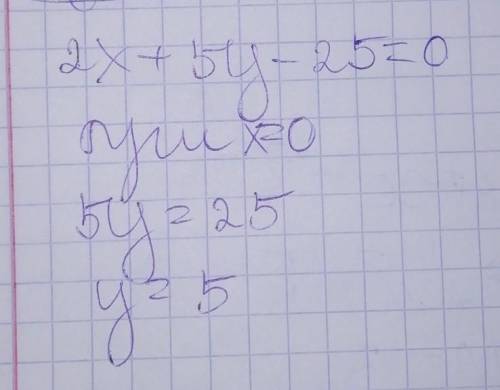 2x + 5y - 25 = 0
при x=0
5y = 25
y = 5